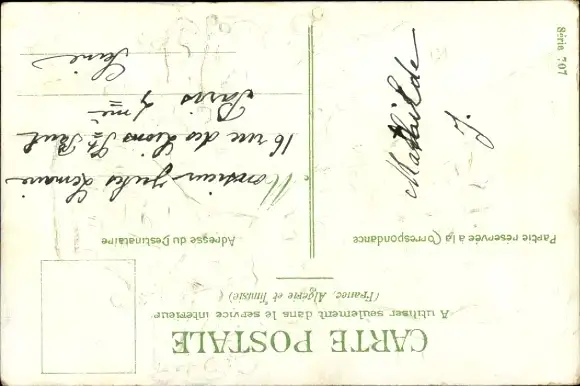 CARTE POSTALE
A utiliser seulement dans le service intérieur
(France, Algérie et Tunisie)
Partie réservée à la Correspondance
Adresse du Destinataire
Mathilde
J.
Monsieur Jules Lemaire
16 rue des Lions St Paul
Paris 4me
Seine
Série 707